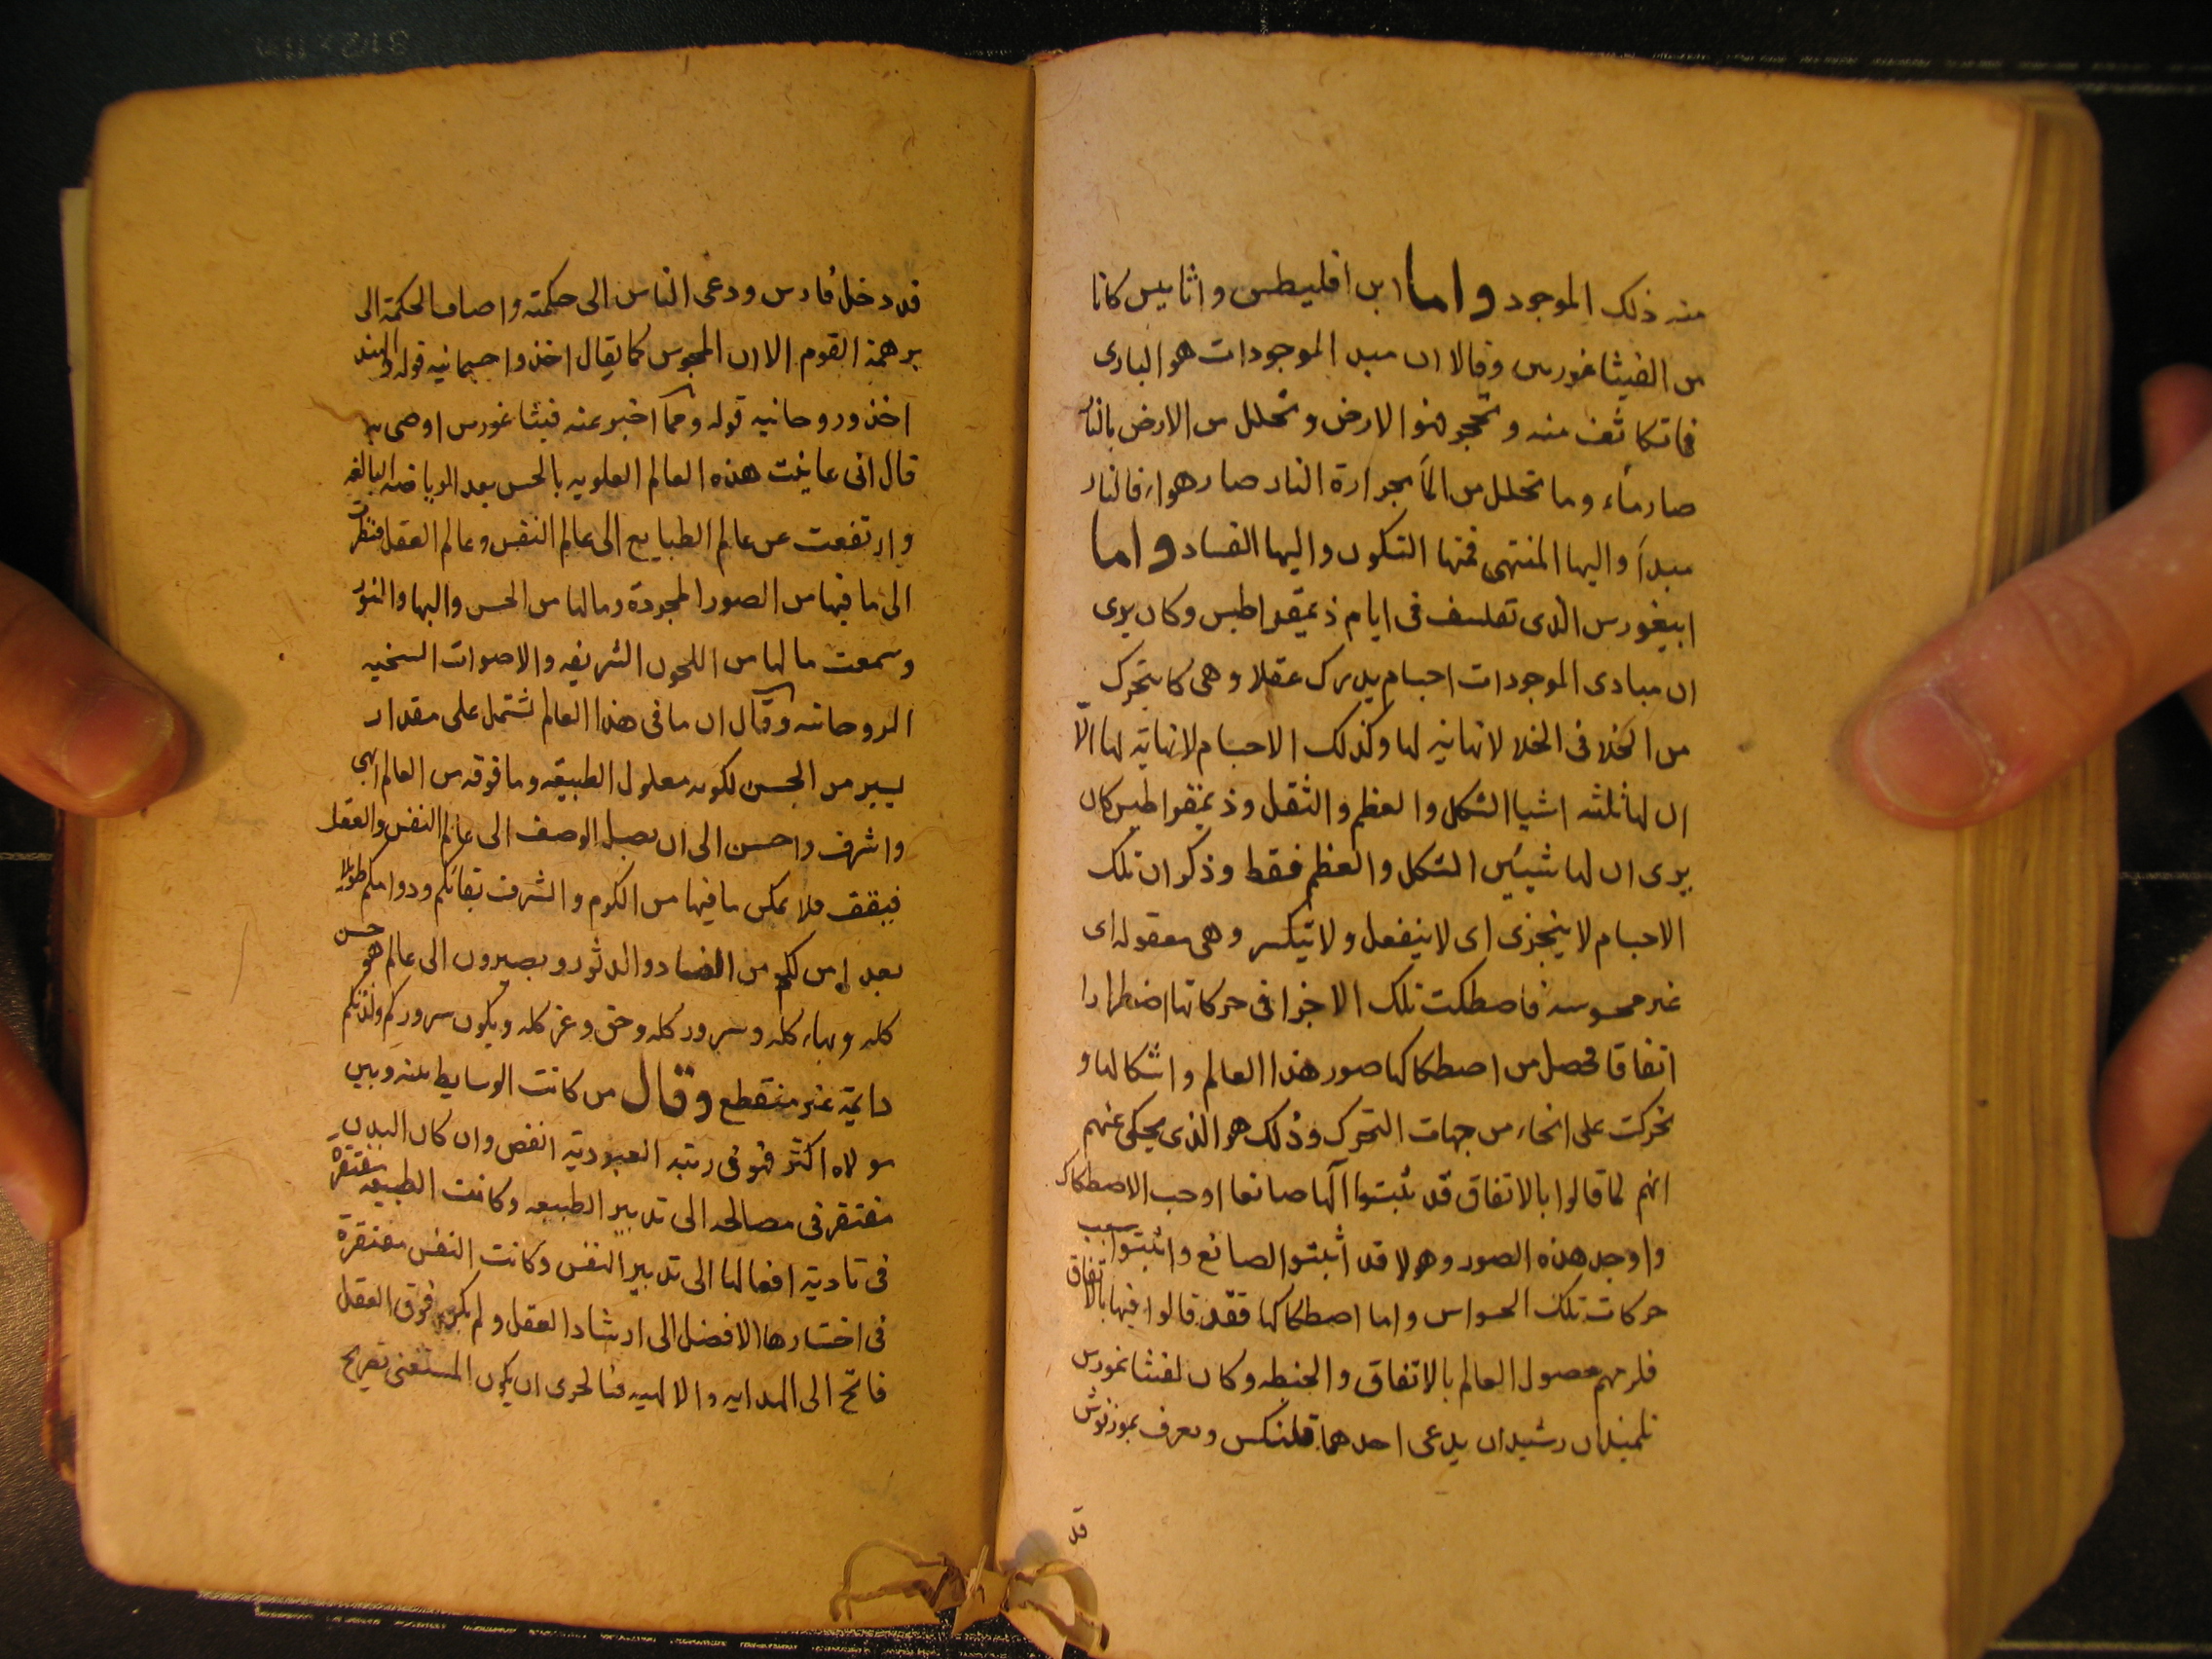 منه ذلك الموجود واما ابن اقليطس واثاييس كانا
من الفيثاغورس وقالا ان مبدا الموجودات هو البارى
فما تكاثف منه وتحجر فهو الارض وتحلل من الارض بالنار
صار ماء وما تحلل من الماء بحرارة النار صار هواء فالنار
مبدأ واليها المنتهى فمنها التكون واليها الفساد واما
ابيغورس الذى تفلسف فى ايام ذيمقراطيس وكان يرى
ان مبادى الموجودات اجسام يدرك عقلا وهى كا يتحرك
من الخلا فى الخلا لانهاية لها وكذلك الاجسام لانهاية لها الّا
ان لها ثلثه اشيا الشكل والعظم والثقل وذيمقراطيس كان
يرى ان لها شيئين الشكل والعظم فقط وذكر ان تلك
الاجسام لا يتجزى اى لا ينفعل ولا يتكسر وهى معقوله اى
غير محسوسه فاصطكت تلك الاجزا فى حركاتها اضطرارا
اتفاقا فحصل من اصطكاكها صور هذا العالم واشكالها و
تحركت على انحاء من جهات التحرك وذلك هو الذى يحكى عنهم
انهم لما قالوا بالاتفاق قد يثبتوا آلها صانعا اوجب الاصطكاك
واوجد هذه الصور وهولا قد اثبتوا الصانع واثبتوا سبب
حركات تلك الحواس واما اصطكاكها فقد قالوا فيها بالاتفاق
فلزمهم حصول العالم بالاتفاق والخبطه وكان لفيثاغورس
تلميذان رشيدان يدعى احدهما قلنكس ويعرف بموزنوش
قد
قد دخل فارس ودعى الناس الى حكمته واضاف الحكمة الى
برهمة القوم الا ان المجوس كما يقال اخذوا جسمانيه قوله والهند
اخذو روحانيه قوله ومما اخبر عنه فيثاغورس اوصى به
قال انى عاينت هذه العالم العلويه بالحس بعد الرياضه البالغه
وارتفعت عن عالم الطبايع الى عالم النفس وعالم العقل فنظرت
الى ما فيها من الصور المجردة ومالها من الحسن والبها والنور
وسمعت ما لها من اللحون الشريفه والاصوات السخيه
الروحانيه وقال ان ما فى هذا العالم تشتمل على مقدار
يسير من الحسن لكونه معلول الطبيعه وما فوقه من العالم ابهى
واشرف واحسن الى ان يصل الوصف الى عالم النفس والعقل
فيقف فلا يمكن ما فيها من الكرم والشرف بقائكم ودوامكم طويلا
بعد من لكم من الفساد والدثور ويصيرون الى عالم هو حسن
كله وبهاء كله وسرور كله وحق وعز كله ويكون سروركم ولذتكم
دايمة غير منقطع وقال من كانت الوسايط بينه وبين
مولاه اكثر فهو فى رتبه العبودية انقص وان كان البدن
مفتقر فى مصالحه الى تدبير الطبيعه وكانت الطبيعه مفتقرة
فى تادية افعالها الى تدبير النفس وكانت النفس مفتقرة
فى اختيارها الافضل الى ارشاد العقل ولم يكن فوق العقل
فاتح الى الهدايه والالهيه فبالحرى ان يكون المستغنى بصريح